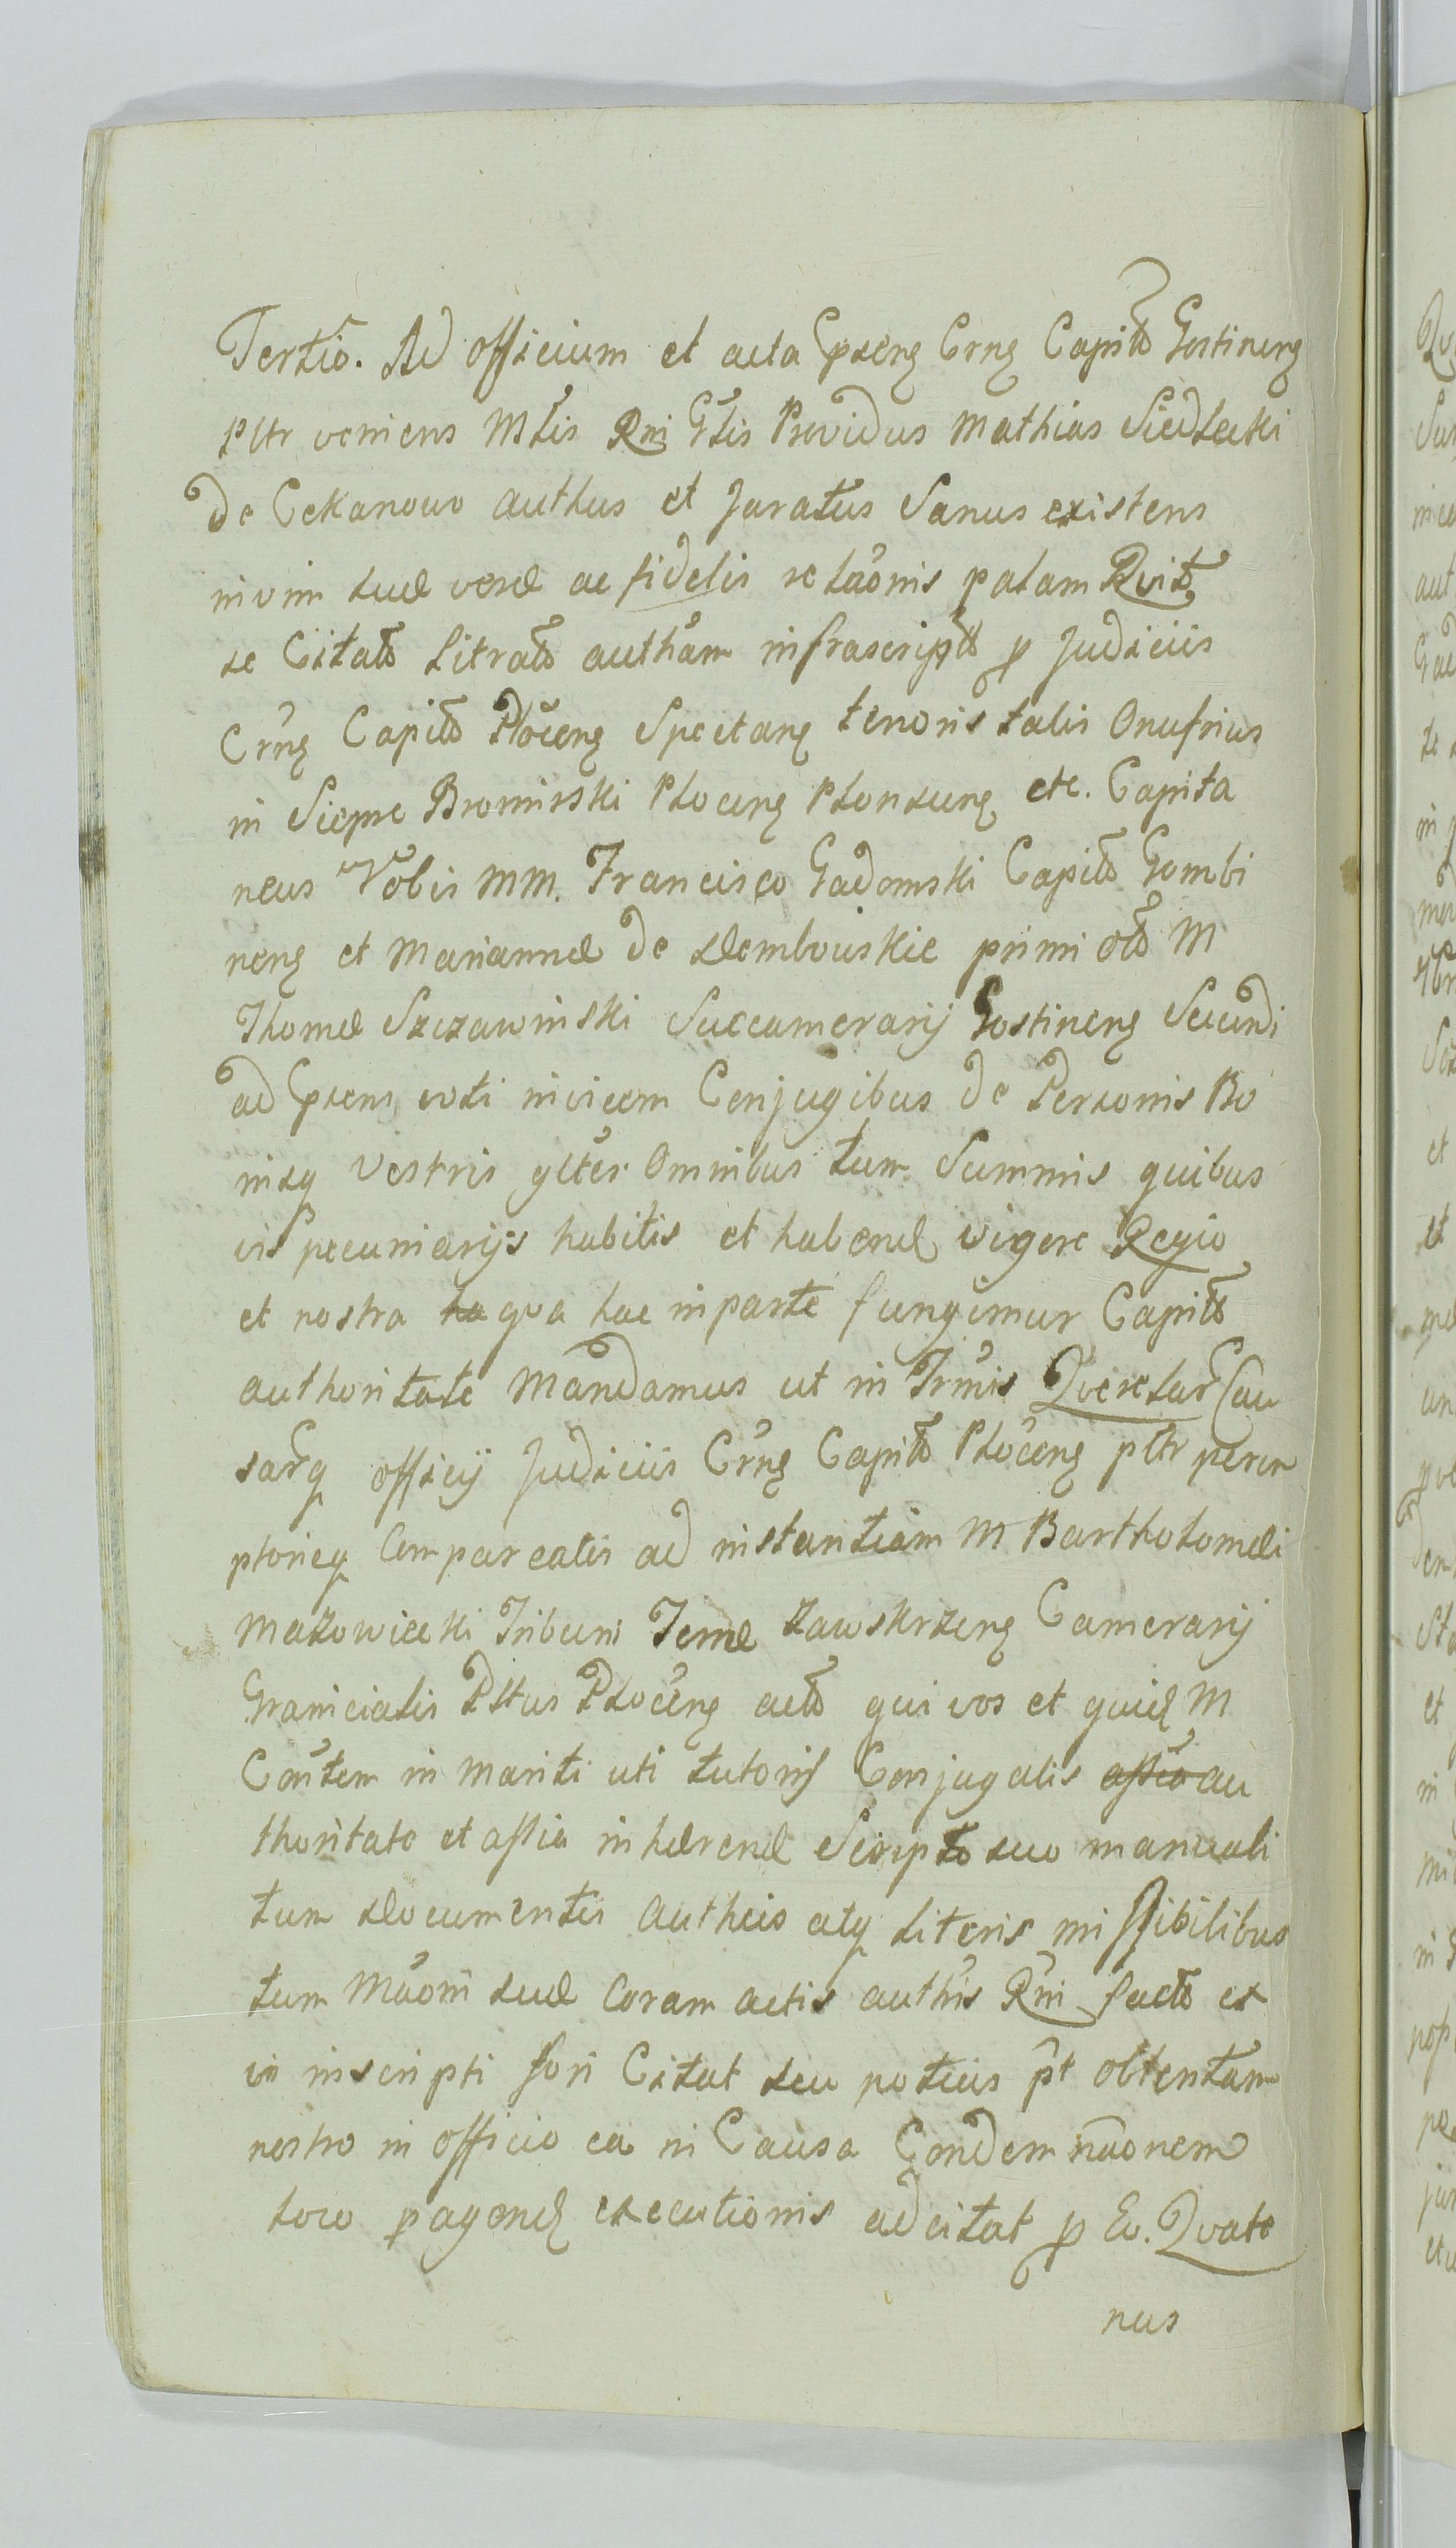 Tertio. Ad officium et acta Gpseng Crng Capitt Gostineng
pltr veniens Mtis Rni Gtis Providus Mathias Siedlecki
de Cekanowo authus et Juratus Sanus existens
in vim suæ veræ ac fidelis relaonis palam Rvit
se Citatt Litratt autham infrascriptt p Judiciis
Crng Capitt Ploceng Spectang tenoris talis Onufrius
in Siepre Bromirski Ploceng Plonsceng etc. Capita
neus Vobis MM. Francisco Gadomski Capitt Gombi
neng et Mariannæ de Dembowskie primi ott M
Thomæ Szczawinski Succamerarij Gostineng Secundi
ad Gpsens voti invicem Conjugibus de Personis Bo
nisq vestris glter Omnibus tum Summis quibus
vis pecuniarijs habitis et habend vigore Regio
et nostra ha qva hac in parte fungimur Capitt
authoritate Mandamus ut in Trmis Qverelar Cau
sarq officij Judiciis Crng Capitt Ploceng pltr perem
ptorieq Compareatis ad instantiam M Bartholomæi
Mazowiecki Tribuni Terræ Zawskrzeng Camerarij
Granicialis Pltus Ploceng actt qui vos et quid M
Contem in Mariti uti tutoris Conjugalis assia au
thoritate et assia inhærend Scripto suo manuali
tum Documentis Autheis atq Literis missibilibus
tum Maoni suæ Coram actis authis Rni factt ex
vi inscripti fori Citat seu potius pt obtentam
nostro in officio ea in Causa Condemnaonem
loco pagend executionis adcitat p Eo. Qvate
nus